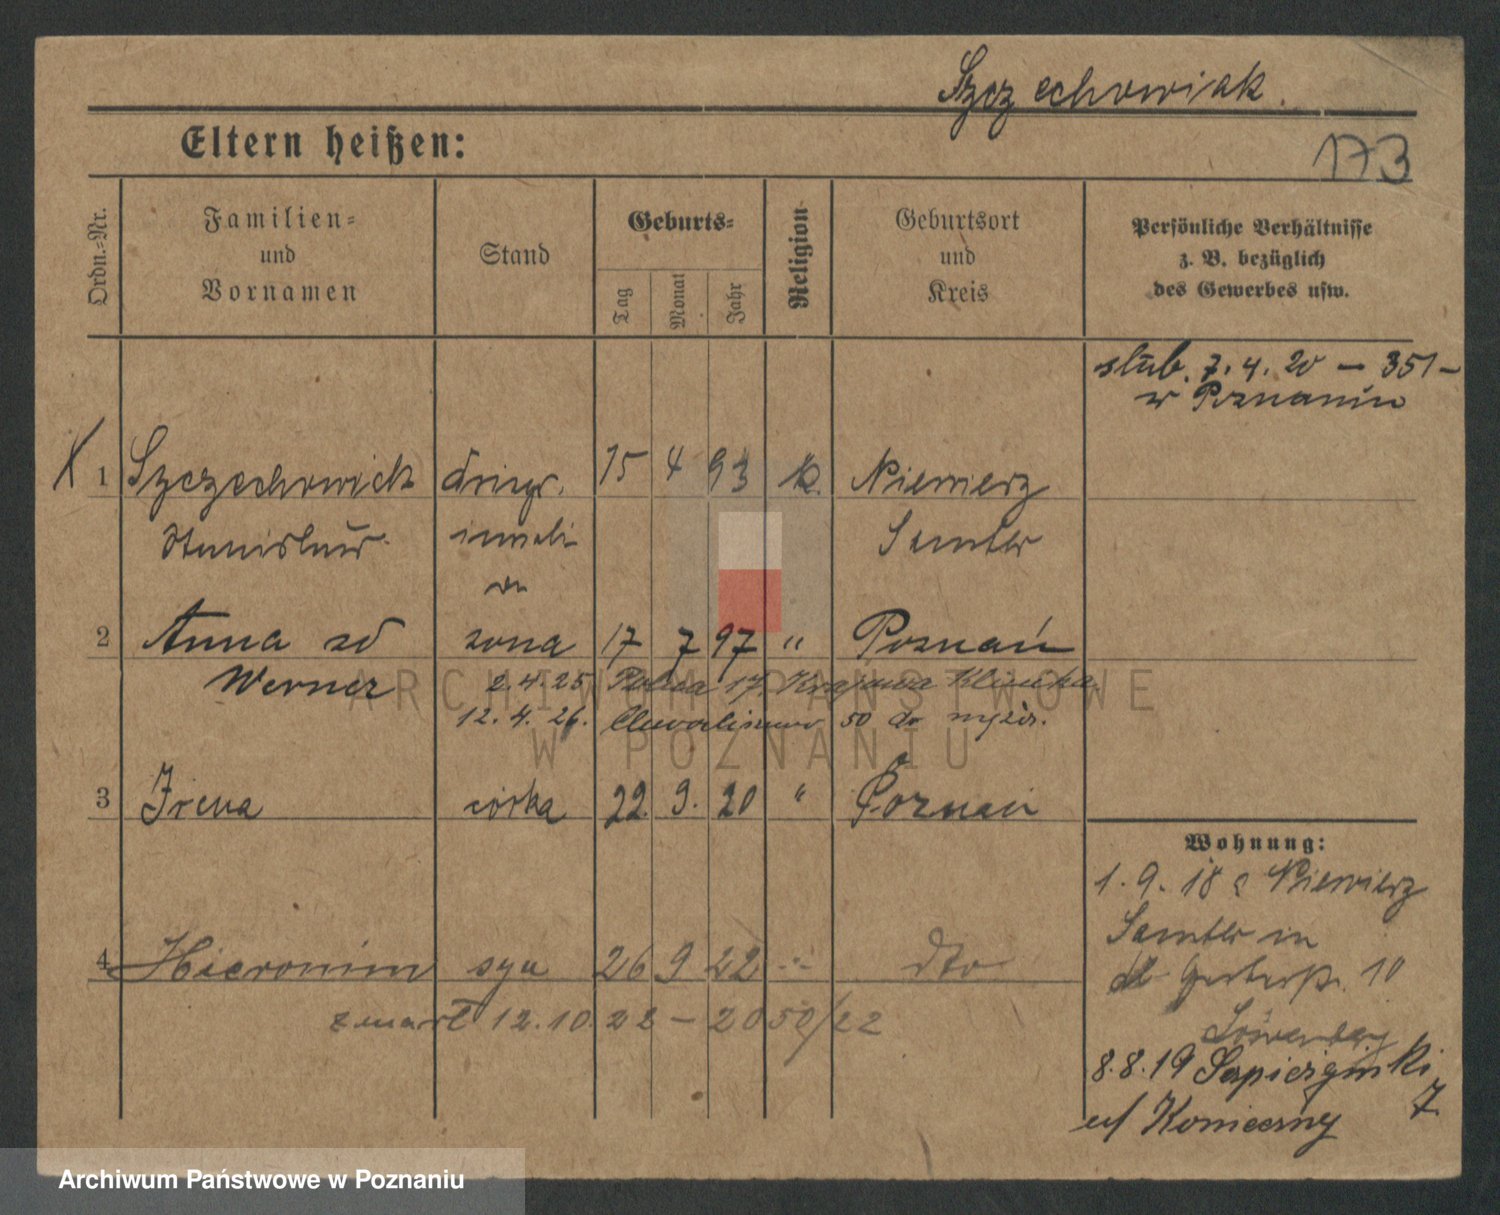 Szczechowiak.
173
Eltern heißen:
Ordn.=Nr.
Familien=
und
Vornamen
Stand
Geburts=
Tag
Monat
Jahr
Religion
Geburtsort
und
Kreis
Persönliche Verhältnisse
z. B. bezüglich
des Gewerbes usw.
slub. 7. 4. 20 — 351 —
w Poznaniu
X 1 Szczechowiak 15 4 93 k. Niewierz
Stanislaus Samter
2 Anna zd żona 17 7 97 " Poznań
Werner 2.4.25. 17
12. 4. 26. 50
3 Irena córka 22. 9. 20 " Poznań
Wohnung:
1. 9. 18 Niewierz
Samter in
10
4 Hieronim syn 26 9 22 " dto
zmarł 12.10.22 — 2050/22
8.8.19 7
u/ Konieczny
ARCHIWUM PAŃSTWOWE
W POZNANIU
Archiwum Państwowe w Poznaniu